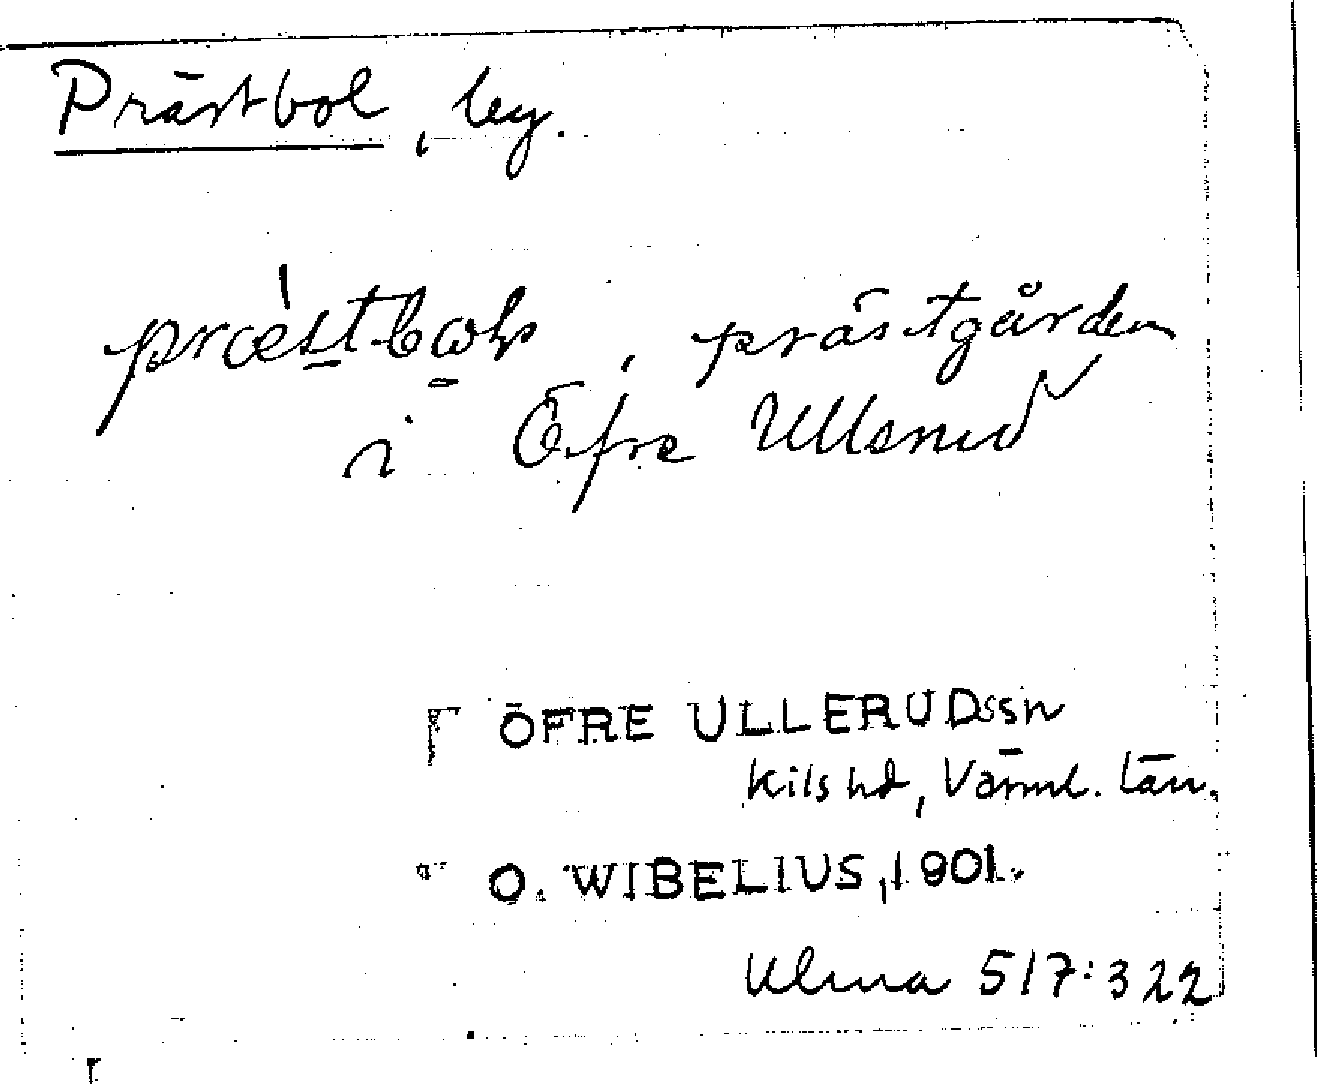 Prästbol, by.
prästgården
i Öfre Ullerud
ÖFRE ULLERUDssn
Kils hd, Värml. län.
O. WIBELIUS, 1901.
Ulma 517:322